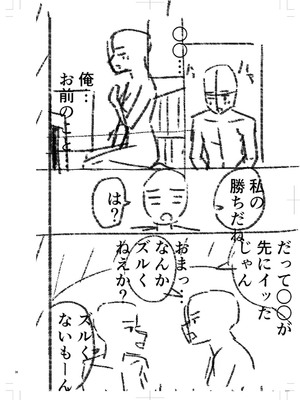 〇〇…
俺…
お前のこと
私の
勝ちだね
は？
だって〇〇が
先にイッた
じゃん
おまっ
なんか
ズルく
ねえか？
ズルく
ないもーん